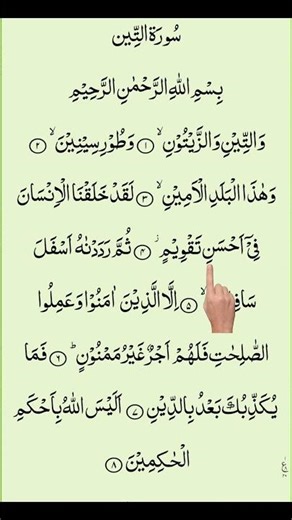 سُورَةُ التِّين
بِسْمِ اللهِ الرَّحْمٰنِ الرَّحِيْمِ
وَالتِّيْنِ وَالزَّيْتُوْنِ ۙ﴿۱﴾ وَطُوْرِ سِيْنِيْنَ ۙ﴿۲﴾
وَهٰذَا الْبَلَدِ الْاَمِيْنِ ۙ﴿۳﴾ لَقَدْ خَلَقْنَا الْاِنْسَانَ
فِيْۤ اَحْسَنِ تَقْوِيْمٍ ۫﴿۴﴾ ثُمَّ رَدَدْنٰهُ اَسْفَلَ
ۙ﴿۵﴾ اِلَّا الَّذِيْنَ اٰمَنُوْا وَعَمِلُوا
الصّٰلِحٰتِ فَلَهُمْ اَجْرٌ غَيْرُ مَمْنُوْنٍ ؕ﴿۶﴾ فَمَا
يُكَذِّبُكَ بَعْدُ بِالدِّيْنِ ﴿۷﴾ اَلَيْسَ اللهُ بِاَحْكَمِ
الْحٰكِمِيْنَ ﴿۸﴾